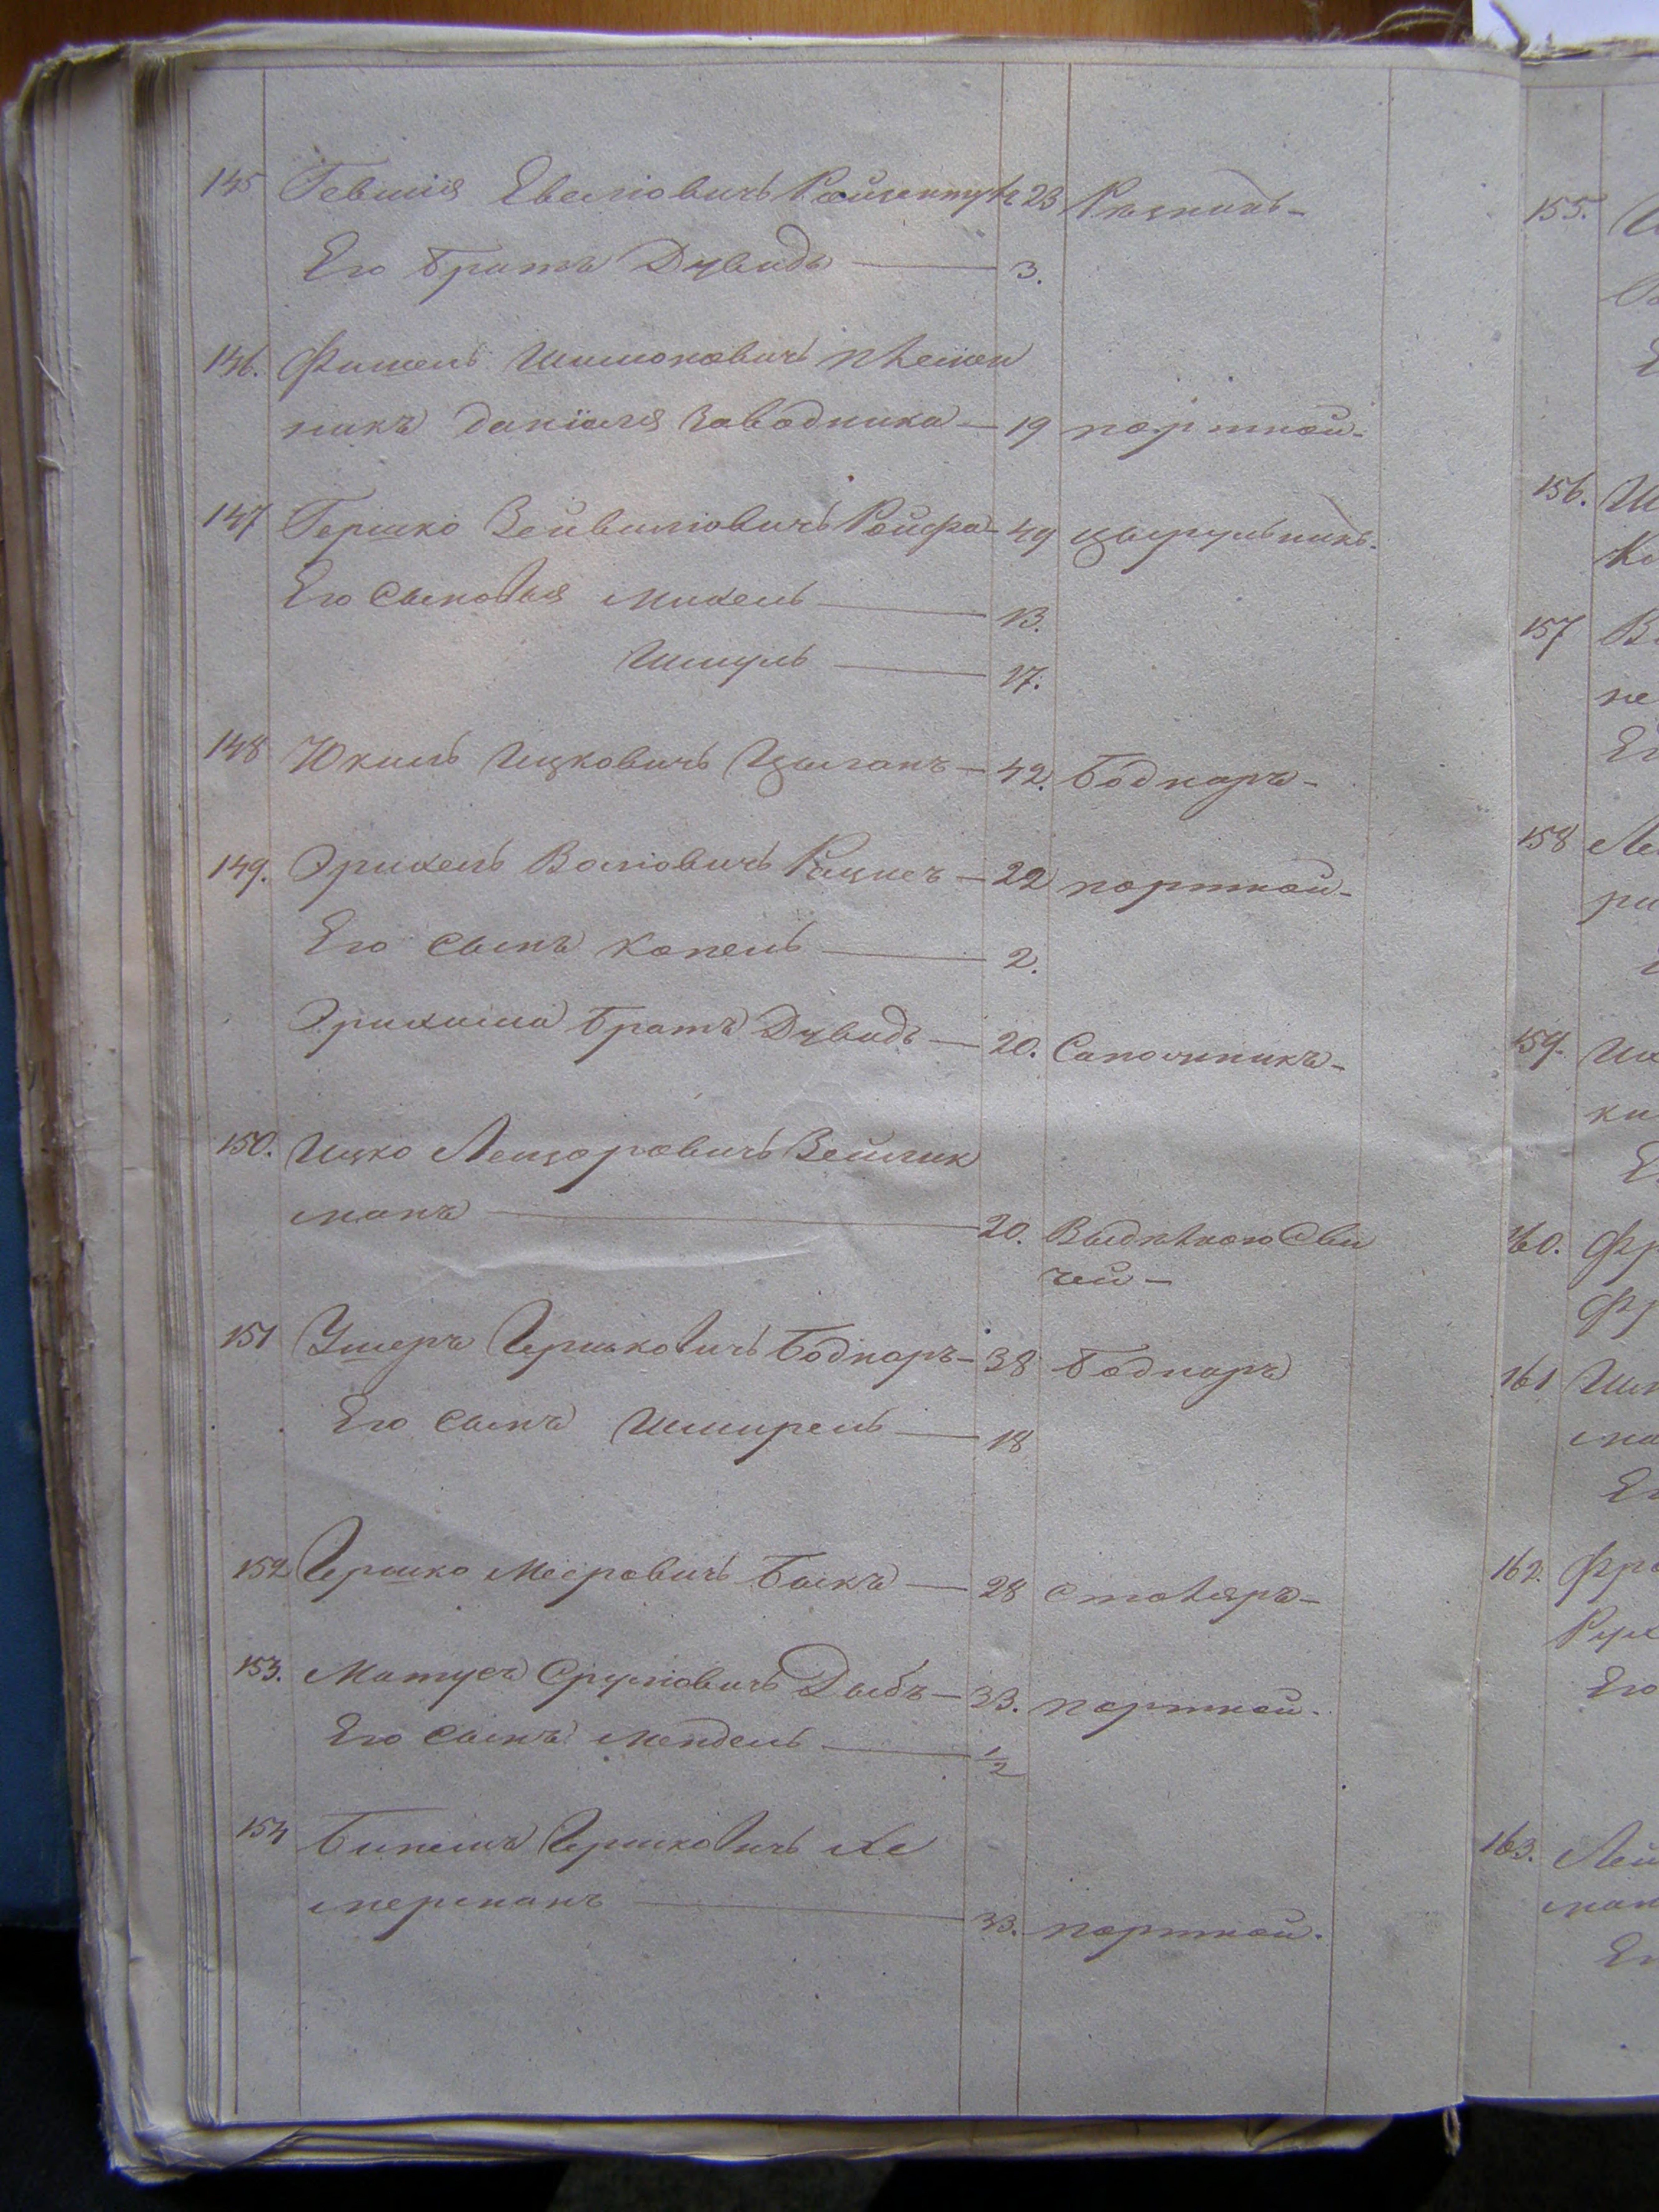 145 Гевшія Евелiовичъ 23 Рѣзникъ-
Его братъ Дувидъ — 3.
146. Фишель Шимоновичъ племен
никъ Даніеля Заводника — 19 портной-
147 Гершко Зейвилiовичъ Ройфа- 49 цырульникъ.
Его сыновья Михель — 13.
Шмуль — 17.
148 Юкиль Ицковичъ Цыганъ — 42. Боднаръ-
149. Эрихель Волiовичъ — 22 портной-
Его сынъ Копель — 2.
Эрихиля братъ Дувидъ — 20. Сапожникъ-
150. Ицко Лейзоровичъ
манъ — 20. Выдѣлкою Сви
чей —
151 Ушеръ Гершковичъ Боднаръ- 38 боднаръ
Его сынъ — 18
152 Гершко Мееровичъ Быкъ — 28 столяръ-
153. Матусъ Сруліовичъ Дыбъ — 33. портной.
Его сынъ Мендель — 1/2
154 Бинемъ Гершковичъ Хе
мерманъ — 33. портной.
155.
156. Ш
157 В
не
Ег
158 Ле
159.
ки
160. Фр
Фр
161
ма
162. Фр
Его
163. Лей
ман